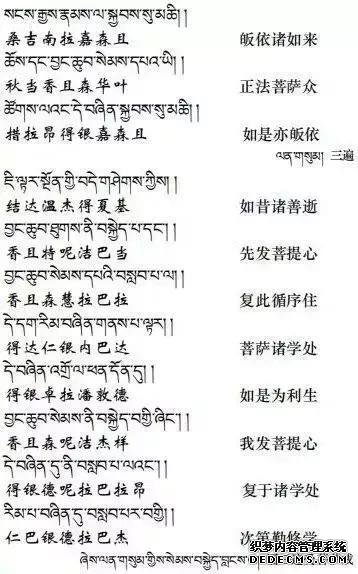 སངས་རྒྱས་རྣམས་ལ་སྐྱབས་སུ་མཆི། །
桑吉南拉嘉森且 皈依诸如来
ཆོས་དང་བྱང་ཆུབ་སེམས་དཔའ་ཡི། །
秋当香且森华叶 正法菩萨众
ཚོགས་ལའང་དེ་བཞིན་སྐྱབས་སུ་མཆི། །
措拉昂得银嘉森且 如是亦皈依
ལན་གསུམ། 三遍
ཇི་ལྟར་སྔོན་གྱི་བདེ་གཤེགས་ཀྱིས། །
结达温杰得夏基 如昔诸善逝
བྱང་ཆུབ་ཐུགས་ནི་བསྐྱེད་པ་དང་། །
香且特呢洁巴当 先发菩提心
བྱང་ཆུབ་སེམས་དཔའི་བསླབ་པ་ལ། །
香且森慧拉巴拉 复此循序住
དེ་དག་རིམ་བཞིན་གནས་པ་ལྟར། །
得达仁银内巴达 菩萨诸学处
དེ་བཞིན་འགྲོ་ལ་ཕན་དོན་དུ། །
得银卓拉潘敦德 如是为利生
བྱང་ཆུབ་སེམས་ནི་བསྐྱེད་བགྱི་ཞིང་། །
香且森呢洁杰样 我发菩提心
དེ་བཞིན་དུ་ནི་བསླབ་པ་ལའང་། །
得银德呢拉巴拉昂 复于诸学处
རིམ་པ་བཞིན་དུ་བསླབ་པར་བགྱི། །
仁巴银德拉巴杰 次第勤修学
ཞེས་ལན་གསུམ་གྱིས་སེམས་བསྐྱེད་བླངས་
织梦内容管理系统
DEDECMS.COM